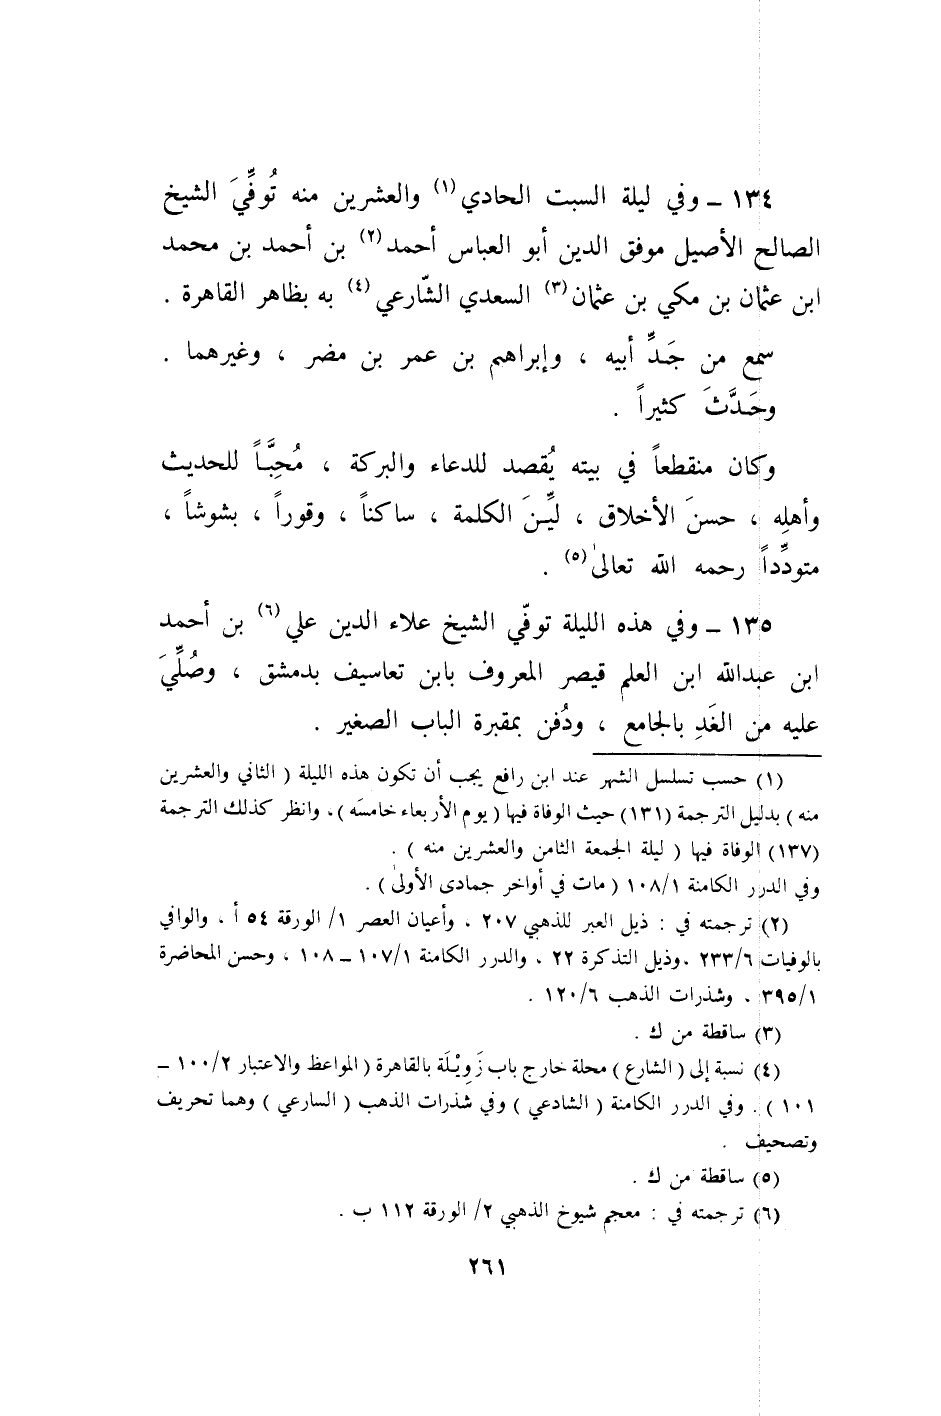 ١٣٤ ــ وفي ليلة السبت الحادي(١) والعشرين منه تُوفِّيَ الشيخ
الصالح الأصيل موفق الدين أبو العباس أحمد(٢) بن أحمد بن محمد
ابن عثمان بن مكي بن عثمان(٣) السعدي الشّارعي(٤) به بظاهر القاهرة .
سمع من جَدِّ أبيه ، وإبراهيم بن عمر بن مضر ، وغيرهما .
وحَدَّثَ كثيراً .
وكان منقطعاً في بيته يُقصد للدعاء والبركة ، مُحِبَّاً للحديث
وأهلِه ، حسنَ الأخلاق ، ليِّنَ الكلمة ، ساكناً ، وقوراً ، بشوشاً ،
متودِّداً رحمه الله تعالىٰ(٥) .
١٣٥ ــ وفي هذه الليلة توفّي الشيخ علاء الدين علي(٦) بن أحمد
ابن عبدالله ابن العلم قيصر المعروف بابن تعاسيف بدمشق ، وصُلِّيَ
عليه من الغَدِ بالجامع ، ودُفن بمقبرة الباب الصغير .
(١) حسب تسلسل الشهر عند ابن رافع يجب أن تكون هذه الليلة ( الثاني والعشرين
منه ) بدليل الترجمة (١٣١) حيث الوفاة فيها ( يوم الأربعاء خامسَه ) ، وانظر كذلك الترجمة
(١٣٧) الوفاة فيها ( ليلة الجمعة الثامن والعشرين منه ) .
وفي الدرر الكامنة ١٠٨/١ ( مات في أواخر جمادى الأولىٰ ) .
(٢) ترجمته في : ذيل العبر للذهبي ٢٠٧ ، وأعيان العصر ١/ الورقة ٥٤ أ ، والوافي
بالوفيات ٢٣٣/٦ ،وذيل التذكرة ٢٢ ، والدرر الكامنة ١٠٧/١ ــ ١٠٨ ، وحسن المحاضرة
٣٩٥/١ ، وشذرات الذهب ١٢٠/٦ .
(٣) ساقطة من ك .
(٤) نسبة إلى ( الشارع ) محلة خارج باب زَوِيْلَة بالقاهرة ( المواعظ والاعتبار ١٠٠/٢ ــ
١٠١ ) . وفي الدرر الكامنة ( الشادعي ) وفي شذرات الذهب ( السارعي ) وهما تحريف
وتصحيف .
(٥) ساقطة من ك .
(٦) ترجمته في : معجم شيوخ الذهبي ٢/ الورقة ١١٢ ب .
٢٦١